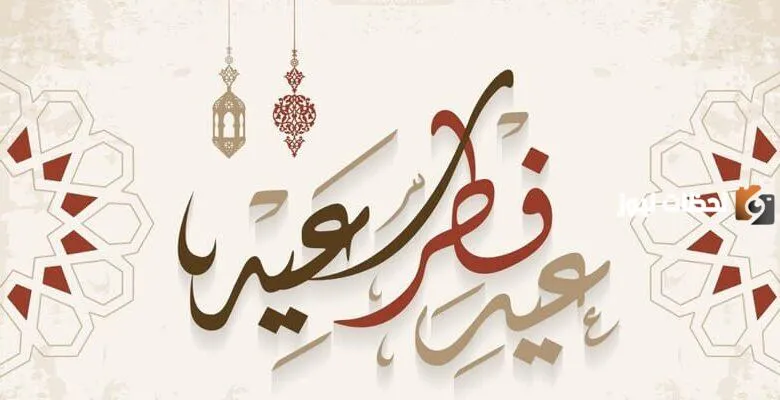 عيد فطر سعيد
لحظات نيوز